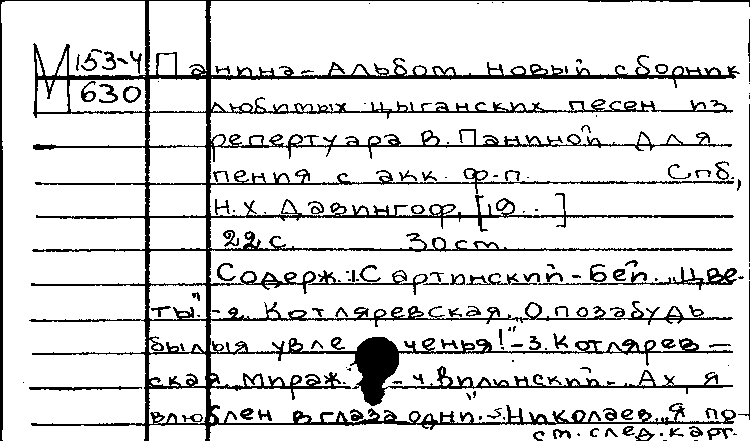 М 153-4
630
Панина-Альбом. Новый сборник
любимых цыганских песен из
репертуара В. Паниной. Для
пения с акк. ф-п. Спб,
Н.Х. Давингоф, [19..]
22 с. 30 см.
Содерж.: 1. Сартинский-Бей. „Цве-
ты" - 2. Котляревская. „О, позабудь
былыя увлеченья!" - 3. Котлярев-
ская. „Мираж. - 4. Вилинский. „Ах, я
влюблен в глаза одни". - 5. Николаев. „Я по-
см. след. карт.